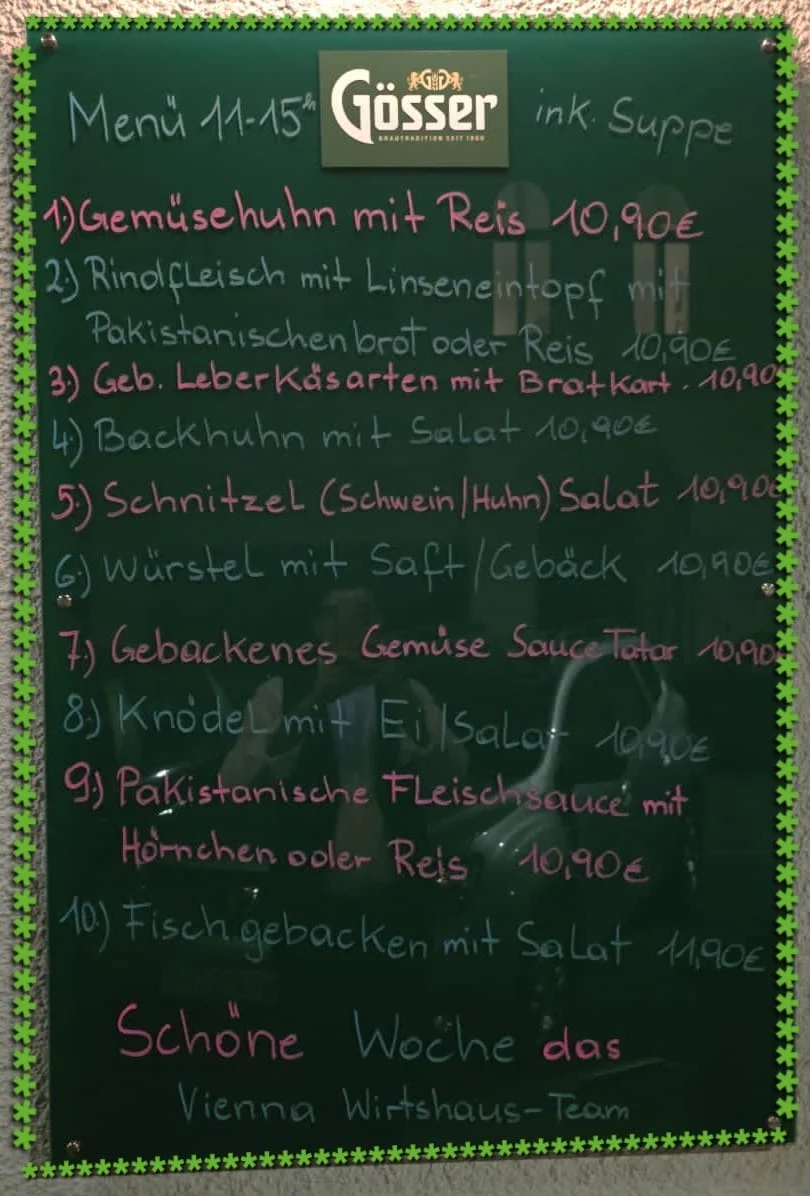 Menü 11-15h Gösser ink. Suppe
BRAUTRADITION SEIT 1860
1.) Gemüsehuhn mit Reis 10,90€
2.) Rindfleisch mit Linseneintopf mit
Pakistanischenbrot oder Reis 10,90€
3.) Geb. Leberkäsarten mit Bratkart. 10,90
4.) Backhuhn mit Salat 10,90€
5.) Schnitzel (Schwein/Huhn) Salat 10,90€
6.) Würstel mit Saft/Gebäck 10,90€
7.) Gebackenes Gemüse Sauce Tatar 10,90
8.) Knödel mit Ei/Salat 10,90€
9.) Pakistanische Fleischsauce mit
Hörnchen oder Reis 10,90€
10.) Fisch gebacken mit Salat 11,90€
Schöne Woche das
Vienna Wirtshaus-Team